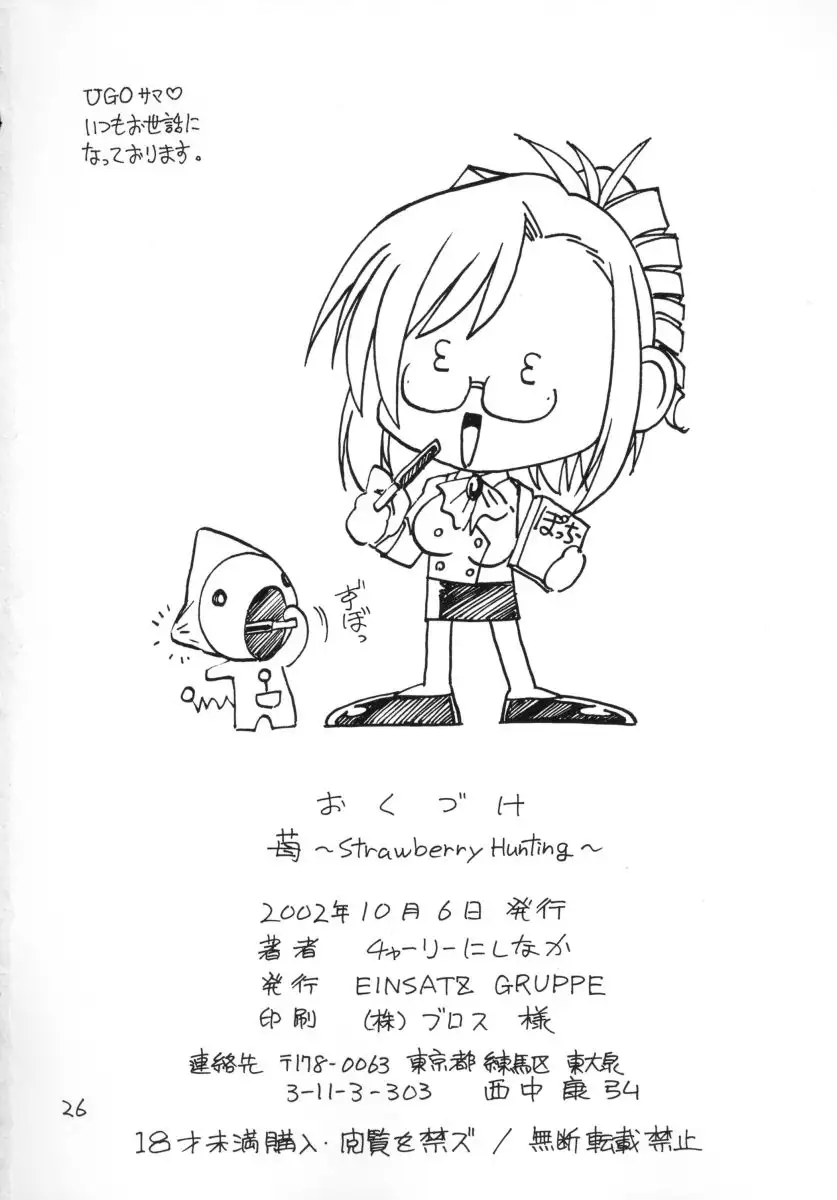 UGOサマ♡
いつもお世話に
なっております。
ぽっちー
ずぼっ
おくづけ
苺 ～Strawberry Hunting～
2002年10月6日 発行
著者 チャーリーにしなか
発行 EINSATZ GRUPPE
印刷 (株)ブロス 様
連絡先 〒178-0063 東京都 練馬区 東大泉
3-11-3-303 西中 康弘
26
18才未満購入・閲覧を禁ズ / 無断転載禁止